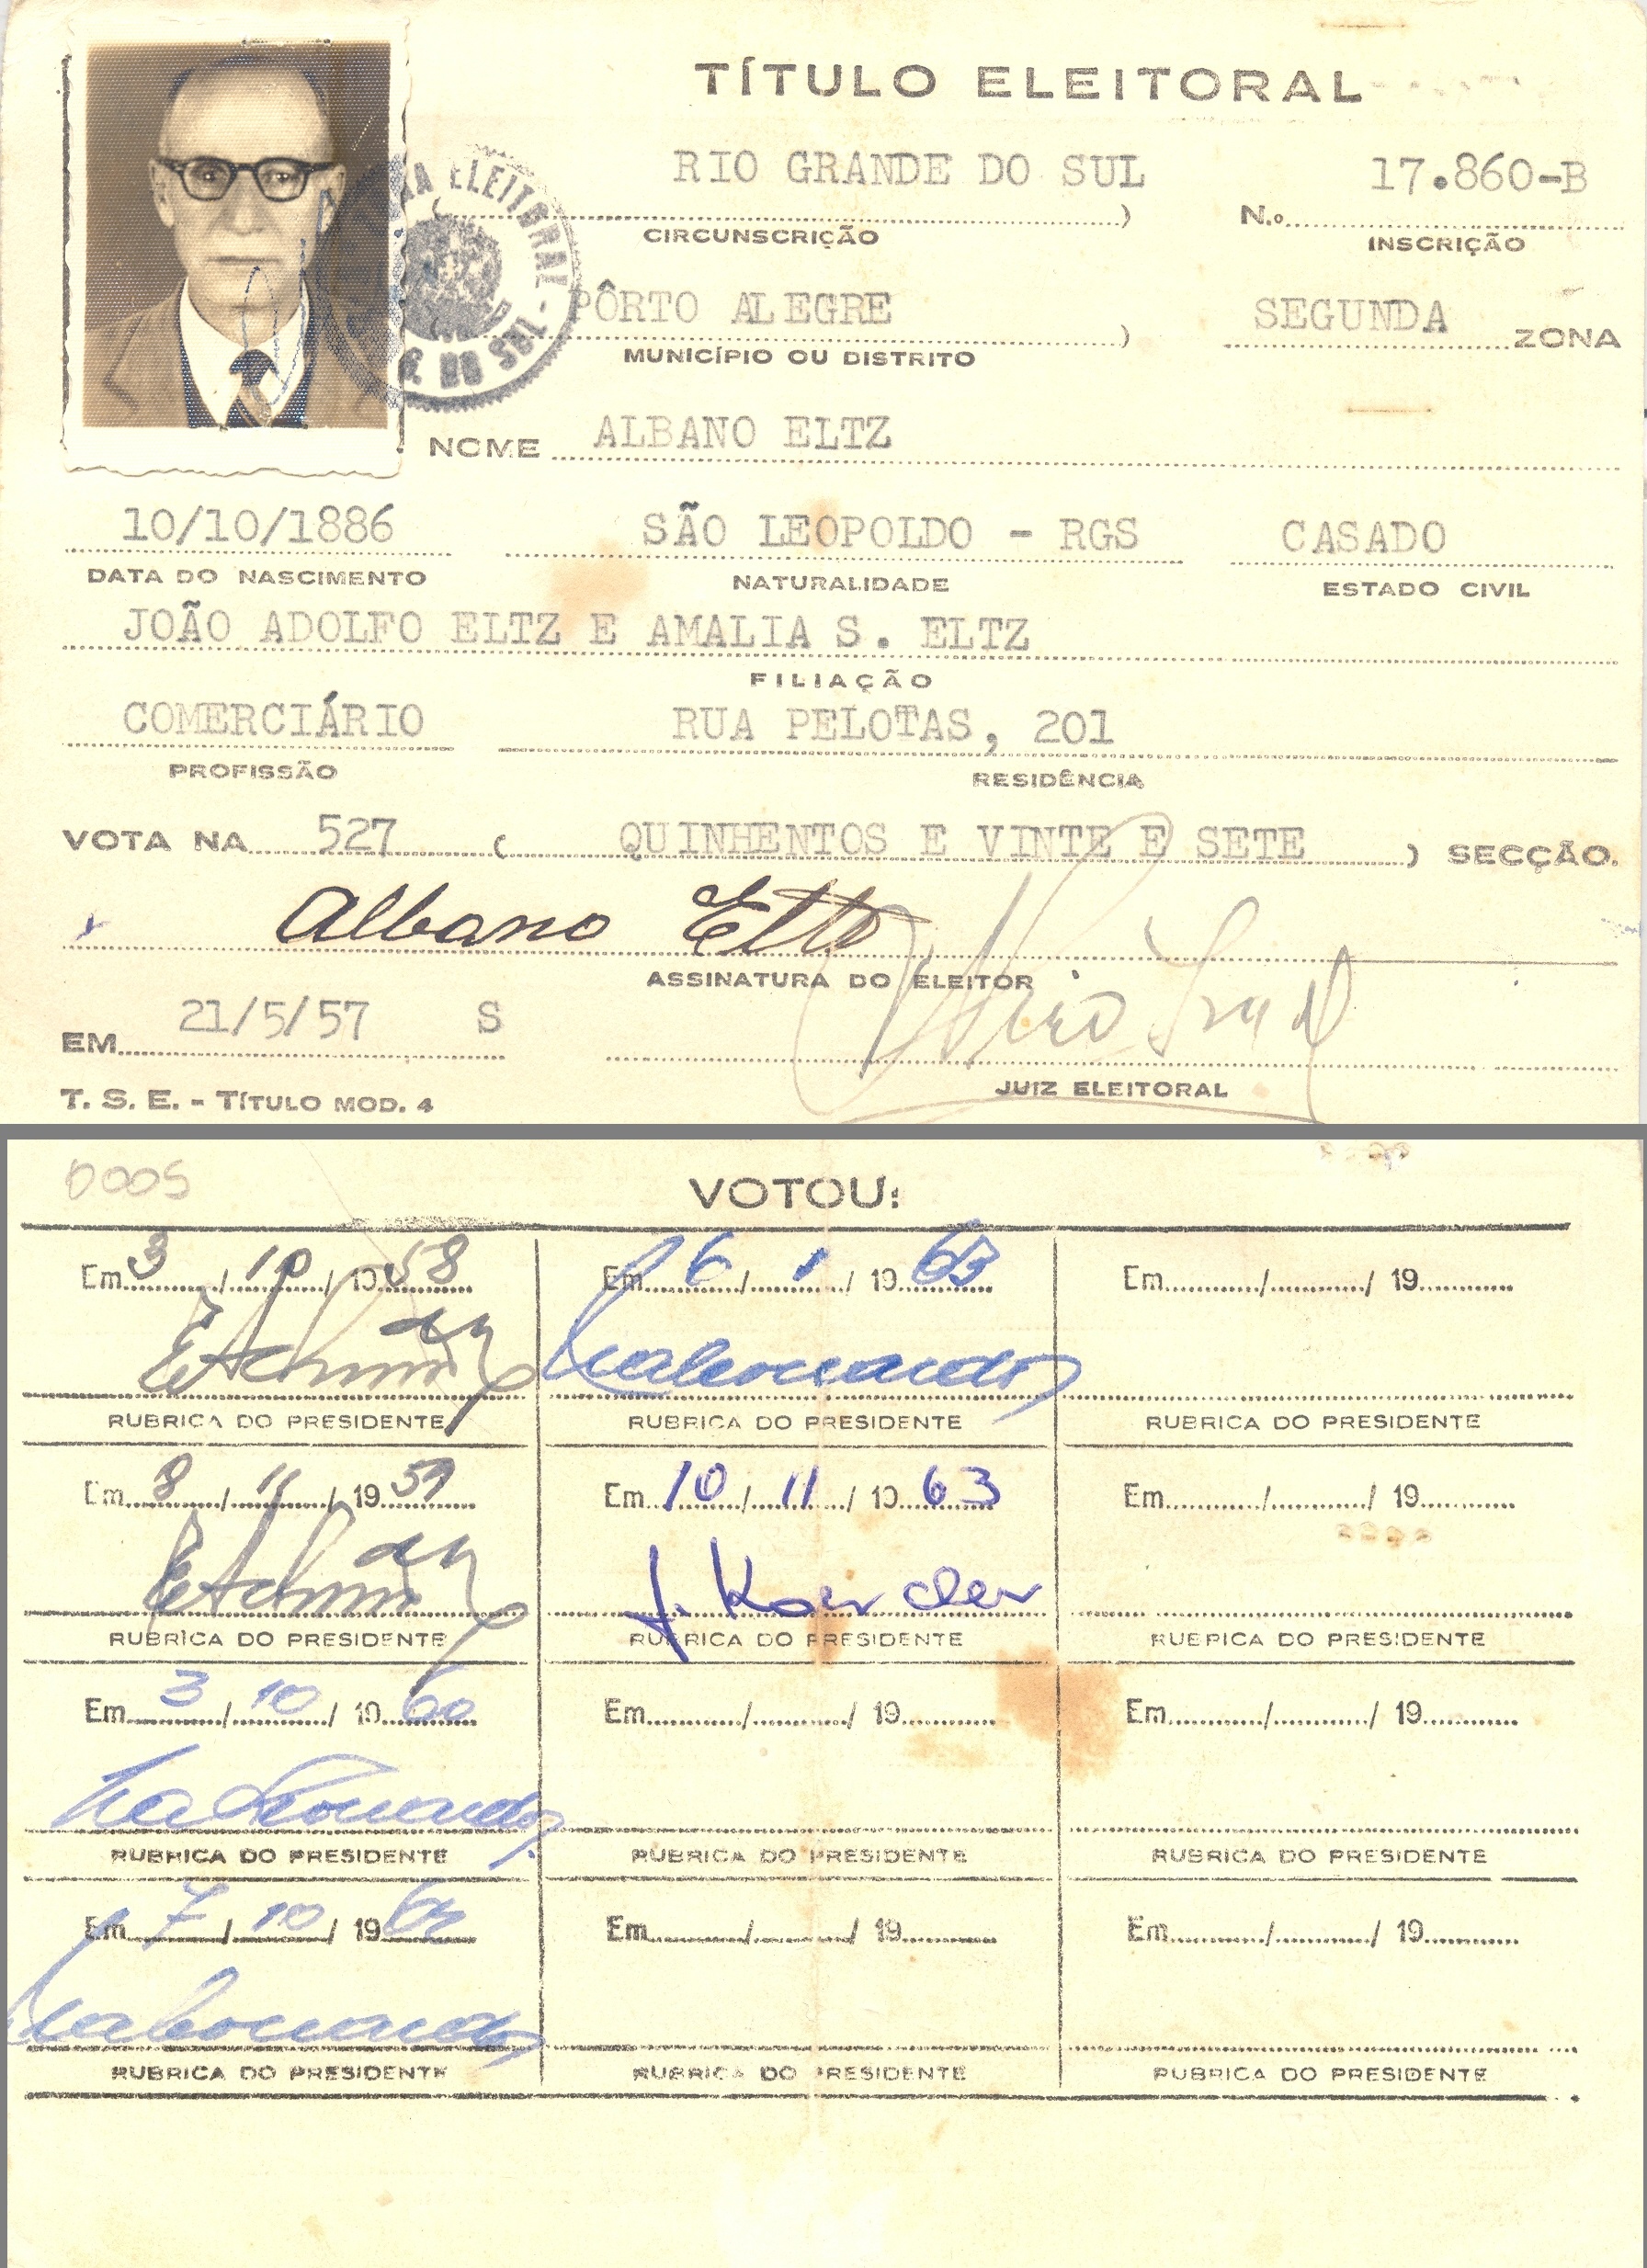 TÍTULO ELEITORAL
RIO GRANDE DO SUL 17.860-B
(....) N.o
CIRCUNSCRIÇÃO INSCRIÇÃO
PÔRTO ALEGRE SEGUNDA ZONA
MUNICÍPIO OU DISTRITO
NOME ALBANO ELTZ
10/10/1886 SÃO LEOPOLDO - RGS CASADO
DATA DO NASCIMENTO NATURALIDADE ESTADO CIVIL
JOÃO ADOLFO ELTZ E AMALIA S. ELTZ
FILIAÇÃO
COMERCIÁRIO RUA PELOTAS, 201
PROFISSÃO RESIDÊNCIA
VOTA NA 527 ( QUINHENTOS E VINTE E SETE ) SECÇÃO.
Albano Eltz
ASSINATURA DO ELEITOR
EM 21/5/57 S
JUIZ ELEITORAL
T. S. E. - TÍTULO MOD. 4
0005
VOTOU:
Em 3 / 10 / 1958 Em 6 / 1 / 1963 Em / / 19
RUBRICA DO PRESIDENTE RUBRICA DO PRESIDENTE RUBRICA DO PRESIDENTE
Em 8 / 11 / 1959 Em 10 / 11 / 1963 Em / / 19
RUBRICA DO PRESIDENTE RUBRICA DO PRESIDENTE RUBRICA DO PRESIDENTE
Em 3 / 10 / 1960 Em / / 19 Em / / 19
RUBRICA DO PRESIDENTE RUBRICA DO PRESIDENTE RUBRICA DO PRESIDENTE
Em 7 / 10 / 1962 Em / / 19 Em / / 19
RUBRICA DO PRESIDENTE RUBRICA DO PRESIDENTE RUBRICA DO PRESIDENTE